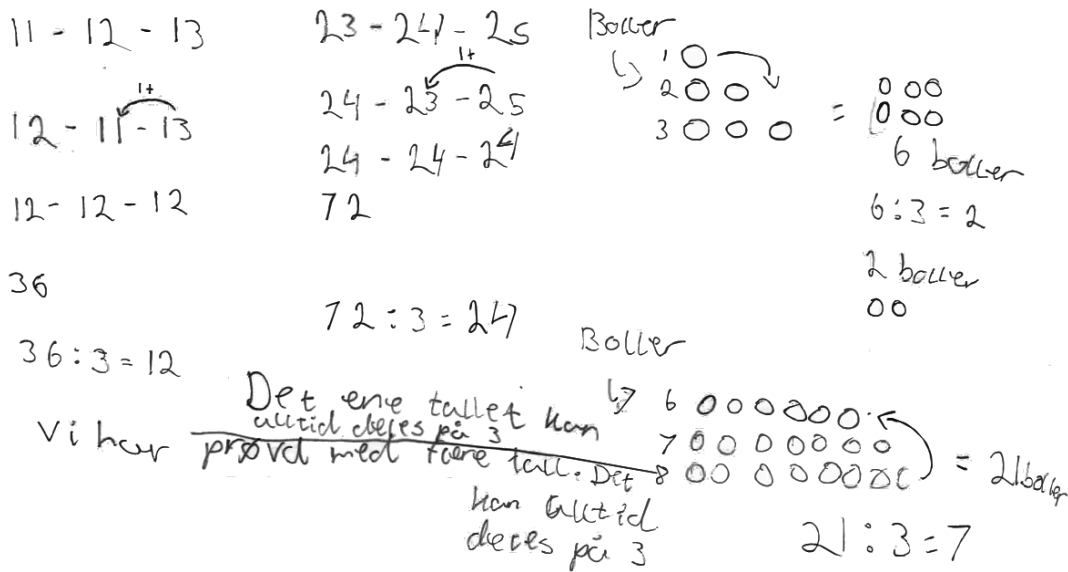 11 - 12 - 13
1+
12 - 11 - 13
12 - 12 - 12
36
36 : 3 = 12
23 - 24 - 25
1+
24 - 23 - 25
24 - 24 - 24
72
72 : 3 = 24
Boller
1
2
3
=
6 boller
6 : 3 = 2
2 boller
Boller
6
7
8
= 21 boller
21 : 3 = 7
Det ene tallet kan
alltid deles på 3
Vi har prøvd med flere tall. Det
kan alltid
deles på 3